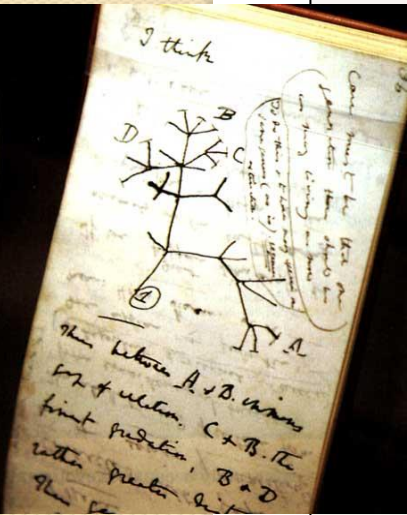 I think
B
D
C
A
1
Case must be that one
generation then should be
as many living as now
To do this & to have many species in
same genus (as is) requires
extinction.
Thus between A. & B. immens
gap of relation. C & B. the
finest gradation, B & D
rather greater dist
Thus ge
36